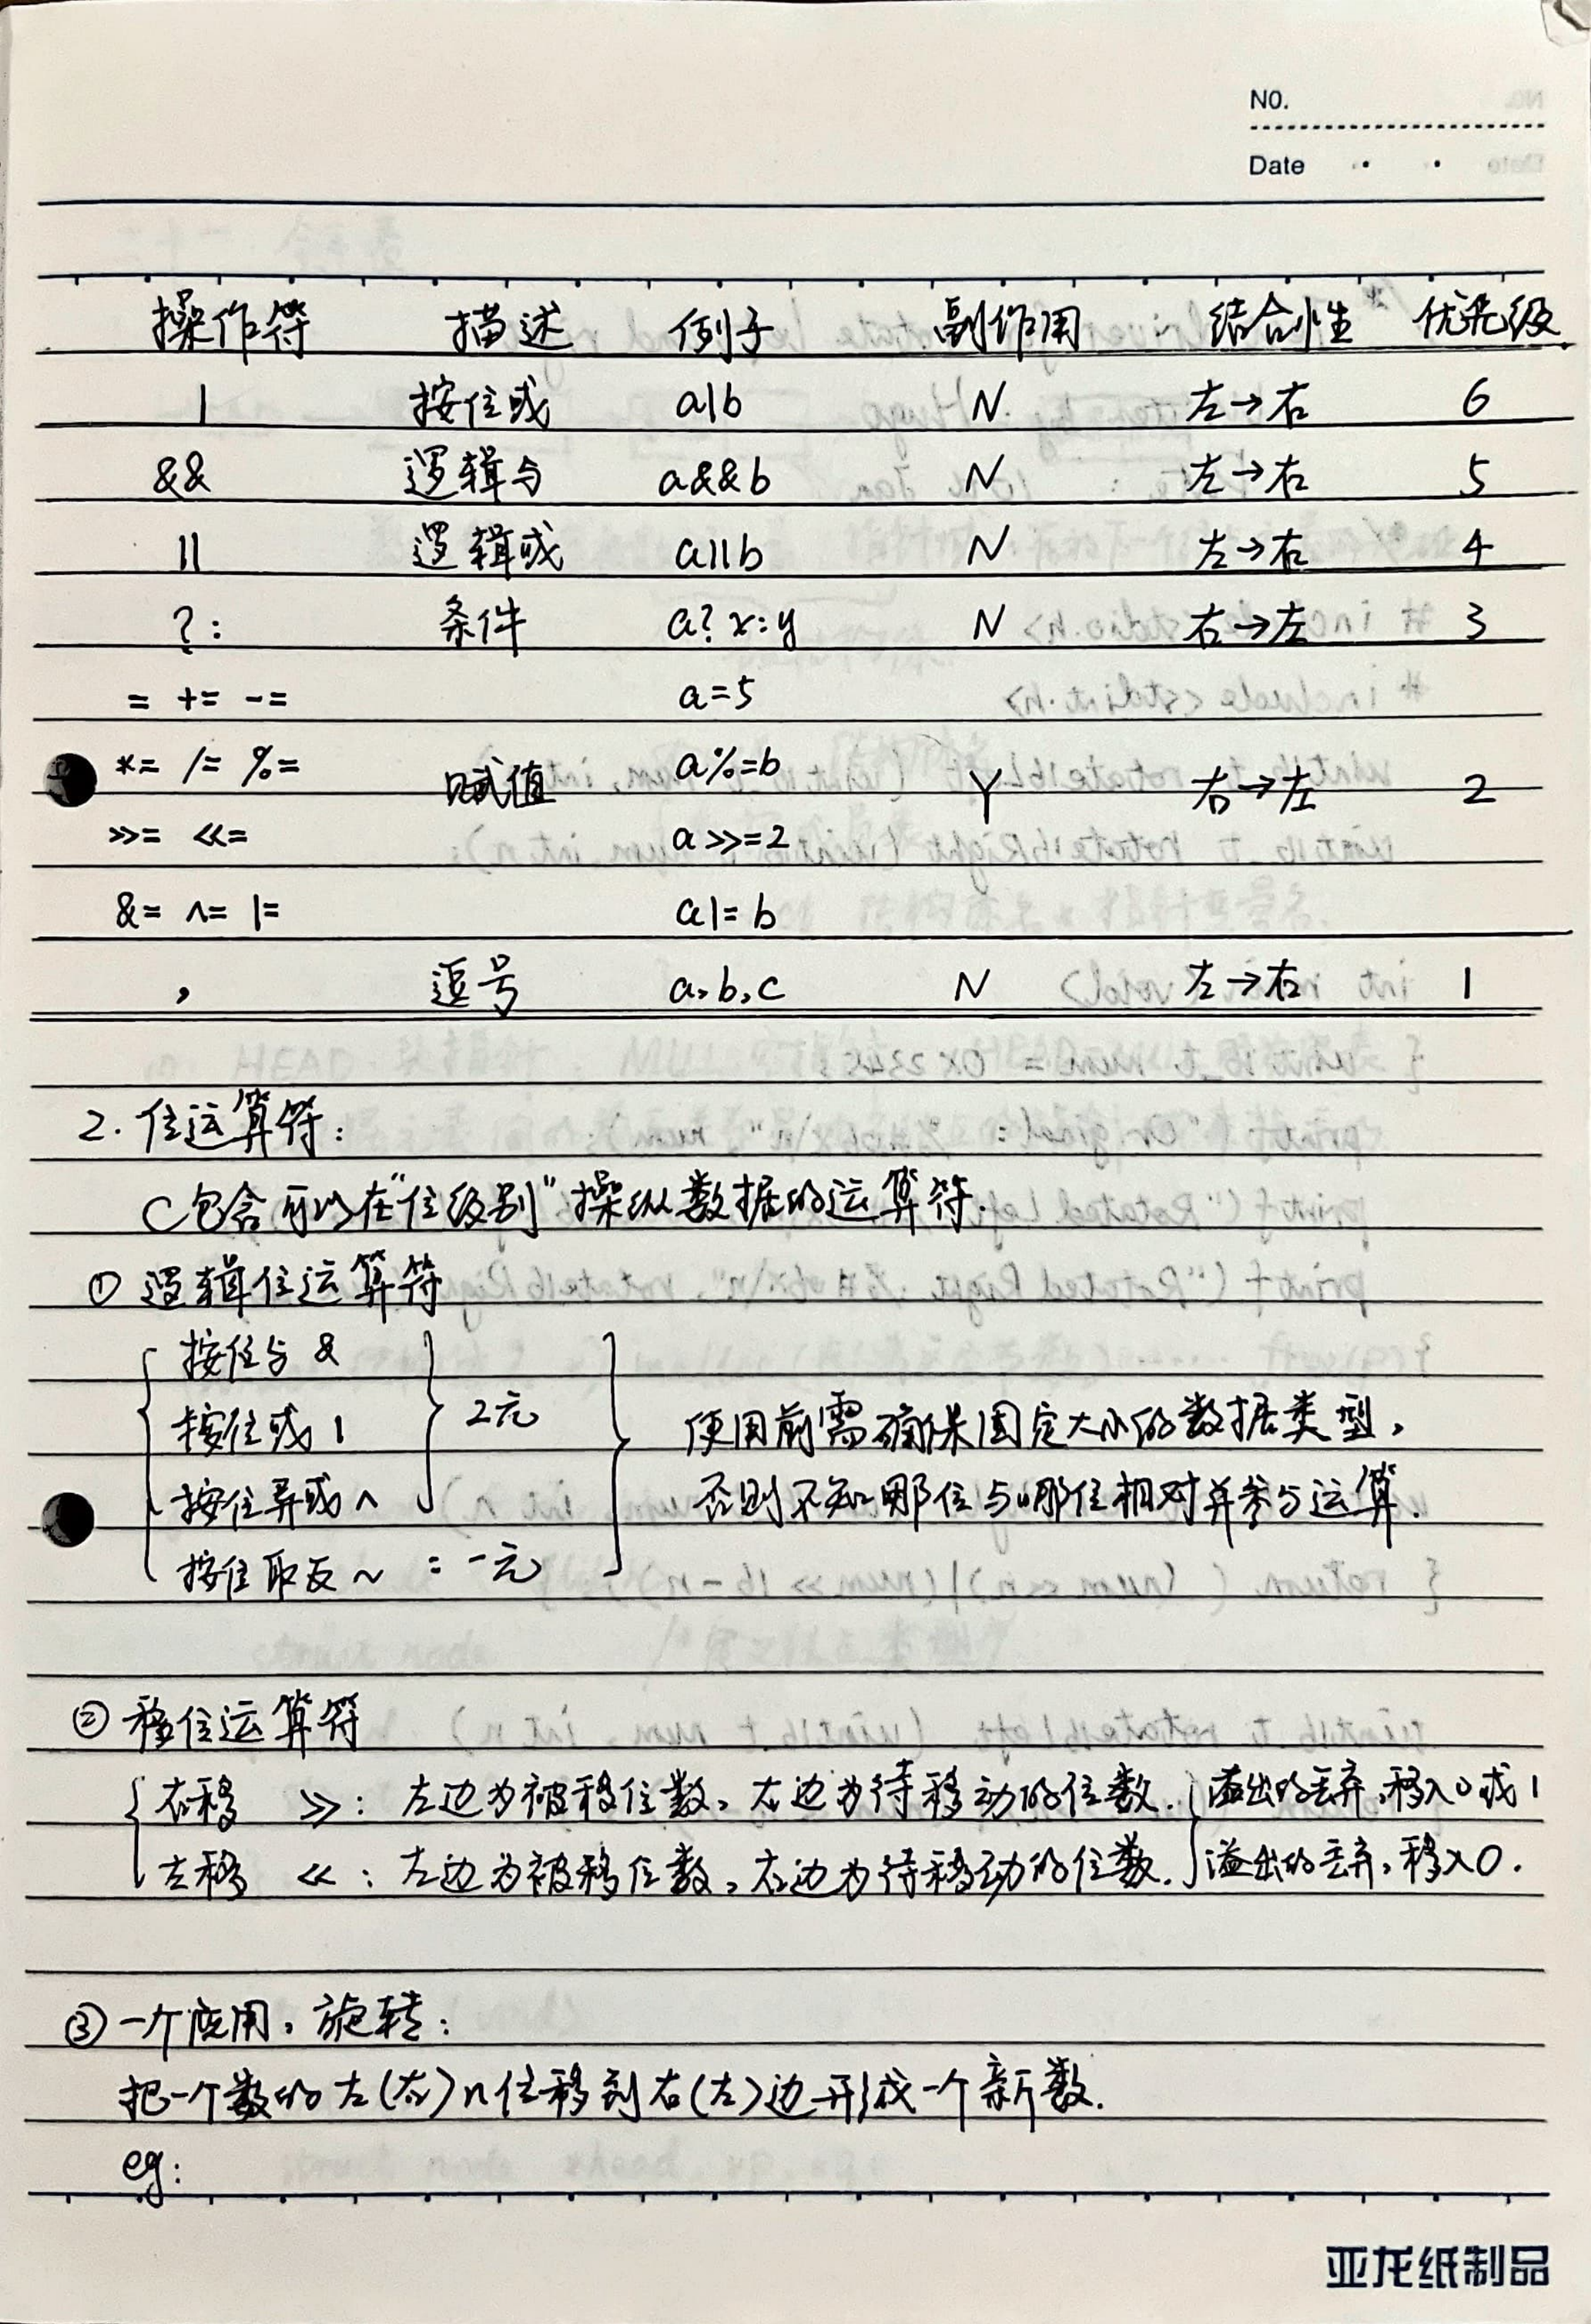 NO.
Date
操作符 描述 例子 副作用 结合性 优先级
| 按位或 a|b N 左→右 6
&& 逻辑与 a&&b N 左→右 5
|| 逻辑或 a||b N 左→右 4
?: 条件 a?x:y N 右→左 3
= += -= a=5
*= /= %= 赋值 a%=b Y 右→左 2
>>= <<= a>>=2
&= ^= |= a|=b
, 逗号 a,b,c N 左→右 1
2.位运算符:
C包含可以在"位级别"操纵数据的运算符.
① 逻辑位运算符
按位与 &
按位或 | 2元 使用前需确保固定大小的数据类型,
按位异或 ^ 否则不知哪位与哪位相对并参与运算.
按位取反 ~ : 一元
② 移位运算符
右移 >>: 左边为被移位数,右边为待移动的位数. 溢出的丢弃,移入0或1
左移 <<: 左边为被移位数,右边为待移动的位数. 溢出的丢弃,移入0.
③ 一个应用,旋转:
把一个数的左(右)n位移到右(左)边形成一个新数.
eg:
亚龙纸制品